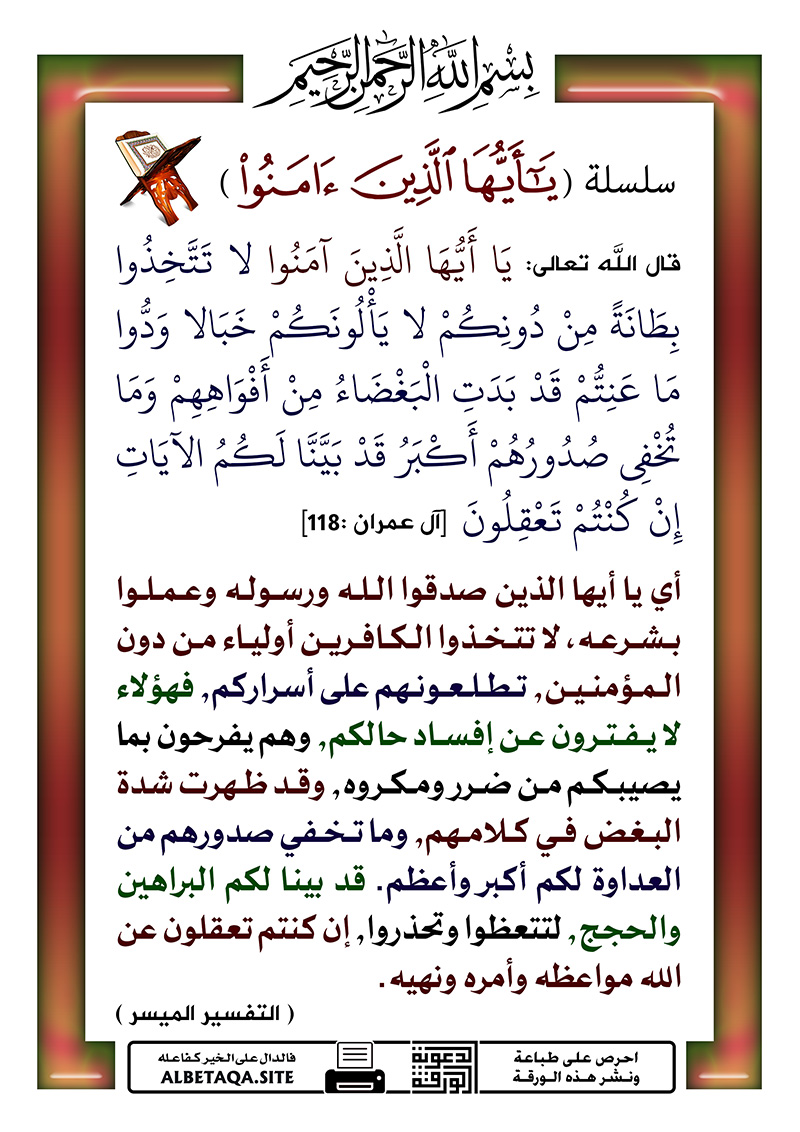 بِسْمِ اللَّهِ الرَّحْمَٰنِ الرَّحِيمِ
سلسلة (يَٰٓأَيُّهَا ٱلَّذِينَ ءَامَنُوا۟)
قال الله تعالى: يَا أَيُّهَا الَّذِينَ آمَنُوا لا تَتَّخِذُوا
بِطَانَةً مِنْ دُونِكُمْ لا يَأْلُونَكُمْ خَبَالا وَدُّوا
مَا عَنِتُّمْ قَدْ بَدَتِ الْبَغْضَاءُ مِنْ أَفْوَاهِهِمْ وَمَا
تُخْفِي صُدُورُهُمْ أَكْبَرُ قَدْ بَيَّنَّا لَكُمُ الآيَاتِ
إِنْ كُنْتُمْ تَعْقِلُونَ [آل عمران :118]
أي يا أيها الذين صدقوا الله ورسوله وعملوا
بشرعه، لا تتخذوا الكافرين أولياء من دون
المؤمنين, تطلعونهم على أسراركم, فهؤلاء
لا يفترون عن إفساد حالكم, وهم يفرحون بما
يصيبكم من ضرر ومكروه, وقد ظهرت شدة
البغض في كلامهم, وما تخفي صدورهم من
العداوة لكم أكبر وأعظم. قد بينا لكم البراهين
والحجج, لتتعظوا وتحذروا, إن كنتم تعقلون عن
الله مواعظه وأمره ونهيه.
( التفسير الميسر )
احرص على طباعة
ونشر هذه الورقة
الورقة الدعوية
فالدال على الخير كفاعله
ALBETAQA.SITE